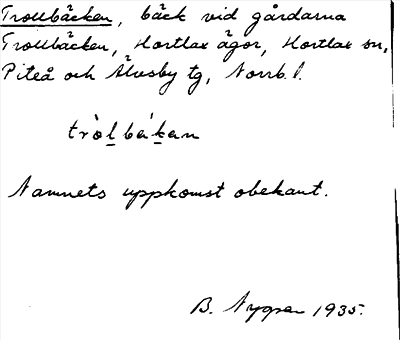 Trollbäcken, bäck vid gårdarna
Trollbäcken, Hortlax ägor, Hortlax sn,
Piteå och Älvsby tg, Norrb. l.
tròlbákan
Namnets uppkomst obekant.
B. Nygren 1935.